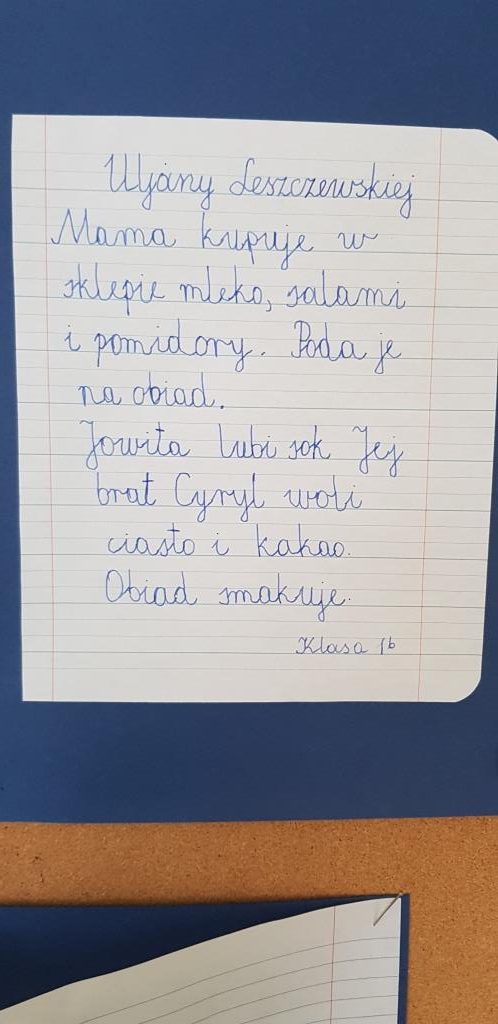 Uljany Leszczewskiej
Mama kupuje w
sklepie mleko, salami
i pomidory. Poda je
na obiad.
Jowita lubi sok Jej
brat Cyryl woli
ciasto i kakao.
Obiad smakuje.
Klasa 1b